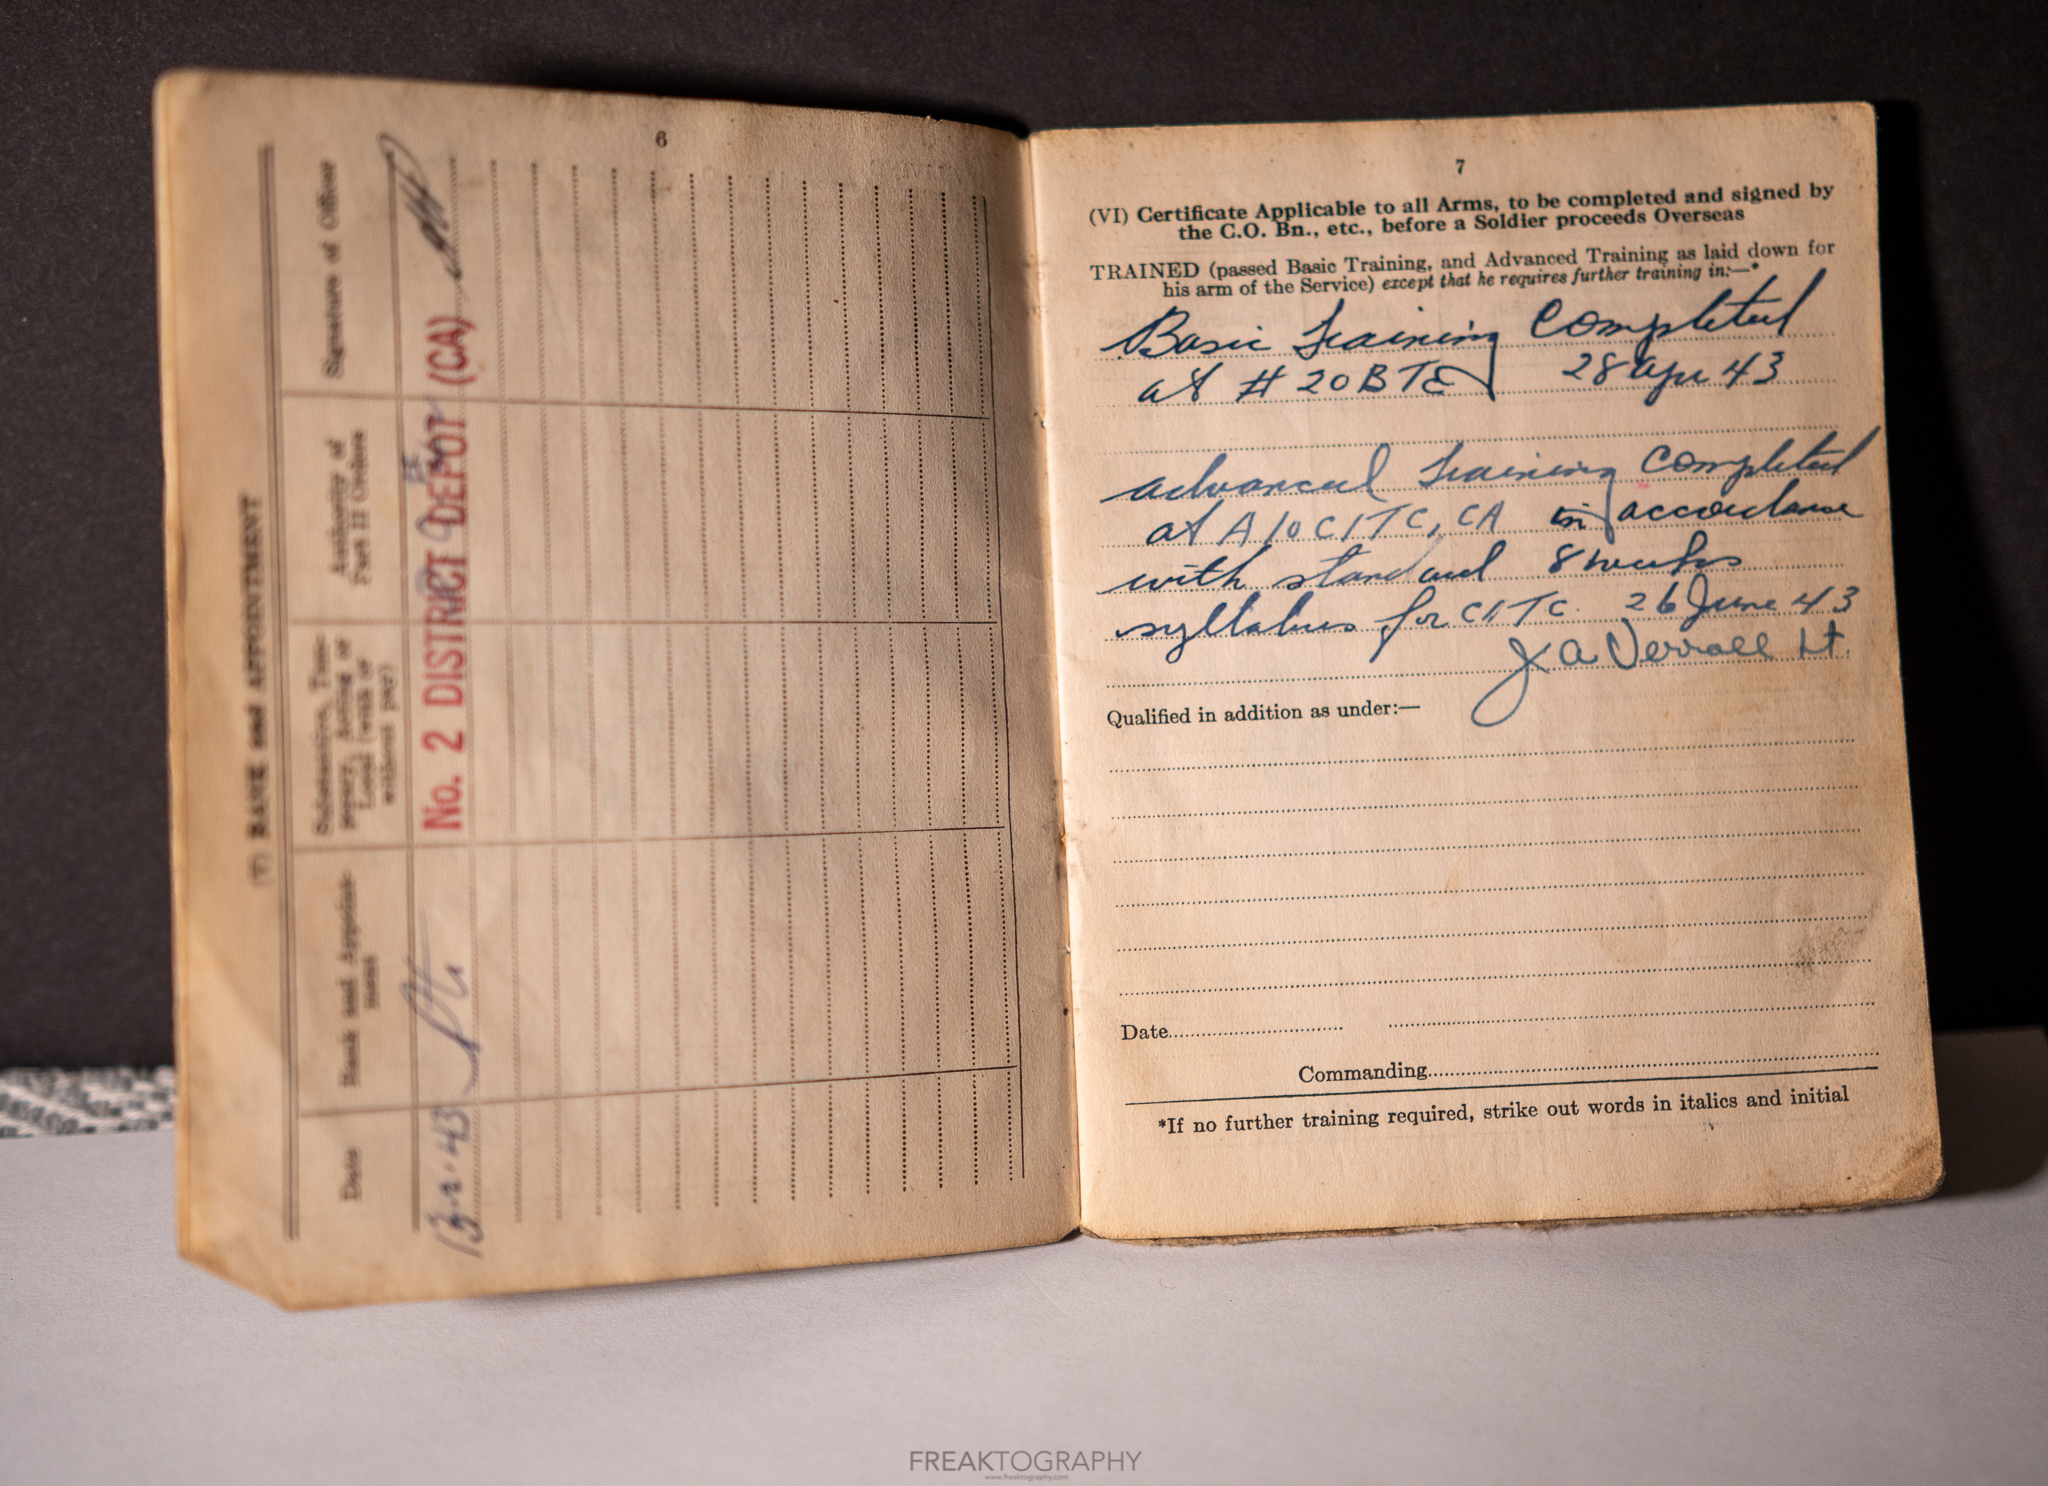 6
(V) RANK and APPOINTMENT
Date
Rank and Appoint-
ment
Substantive, Tem-
porary, Acting or
Local (with or
without pay)
Authority of
Part II Orders
Signature of Officer
43
Pte
No. 2 DISTRICT DEPOT (CA)
7
(VI) Certificate Applicable to all Arms, to be completed and signed by
the C.O. Bn., etc., before a Soldier proceeds Overseas
TRAINED (passed Basic Training, and Advanced Training as laid down for
his arm of the Service) except that he requires further training in:—*
Basic Training Completed
at # 20 BTC 28 Apr 43
advanced Training completed
at A10 CITC, CA in accordance
with standard 8 weeks
syllabus for CITC. 26 June 43
J A Verrall Lt.
Qualified in addition as under:—
Date
Commanding
*If no further training required, strike out words in italics and initial
FREAKTOGRAPHY
www.freaktography.com